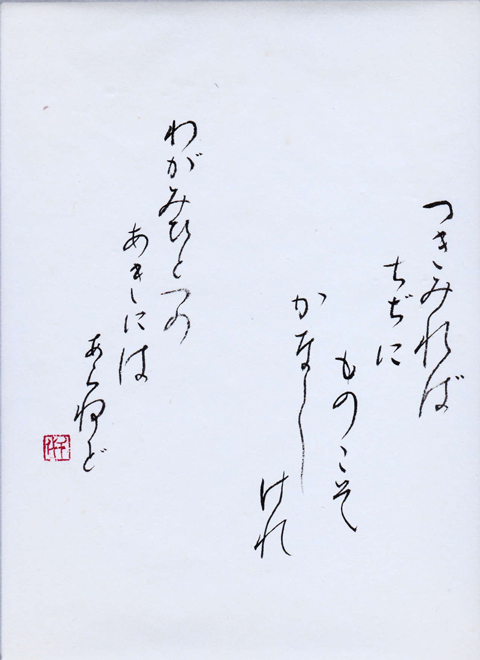 つきみれば
ちぢに
ものこそ
かなし
けれ
わがみひとつの
あきには
あらねど